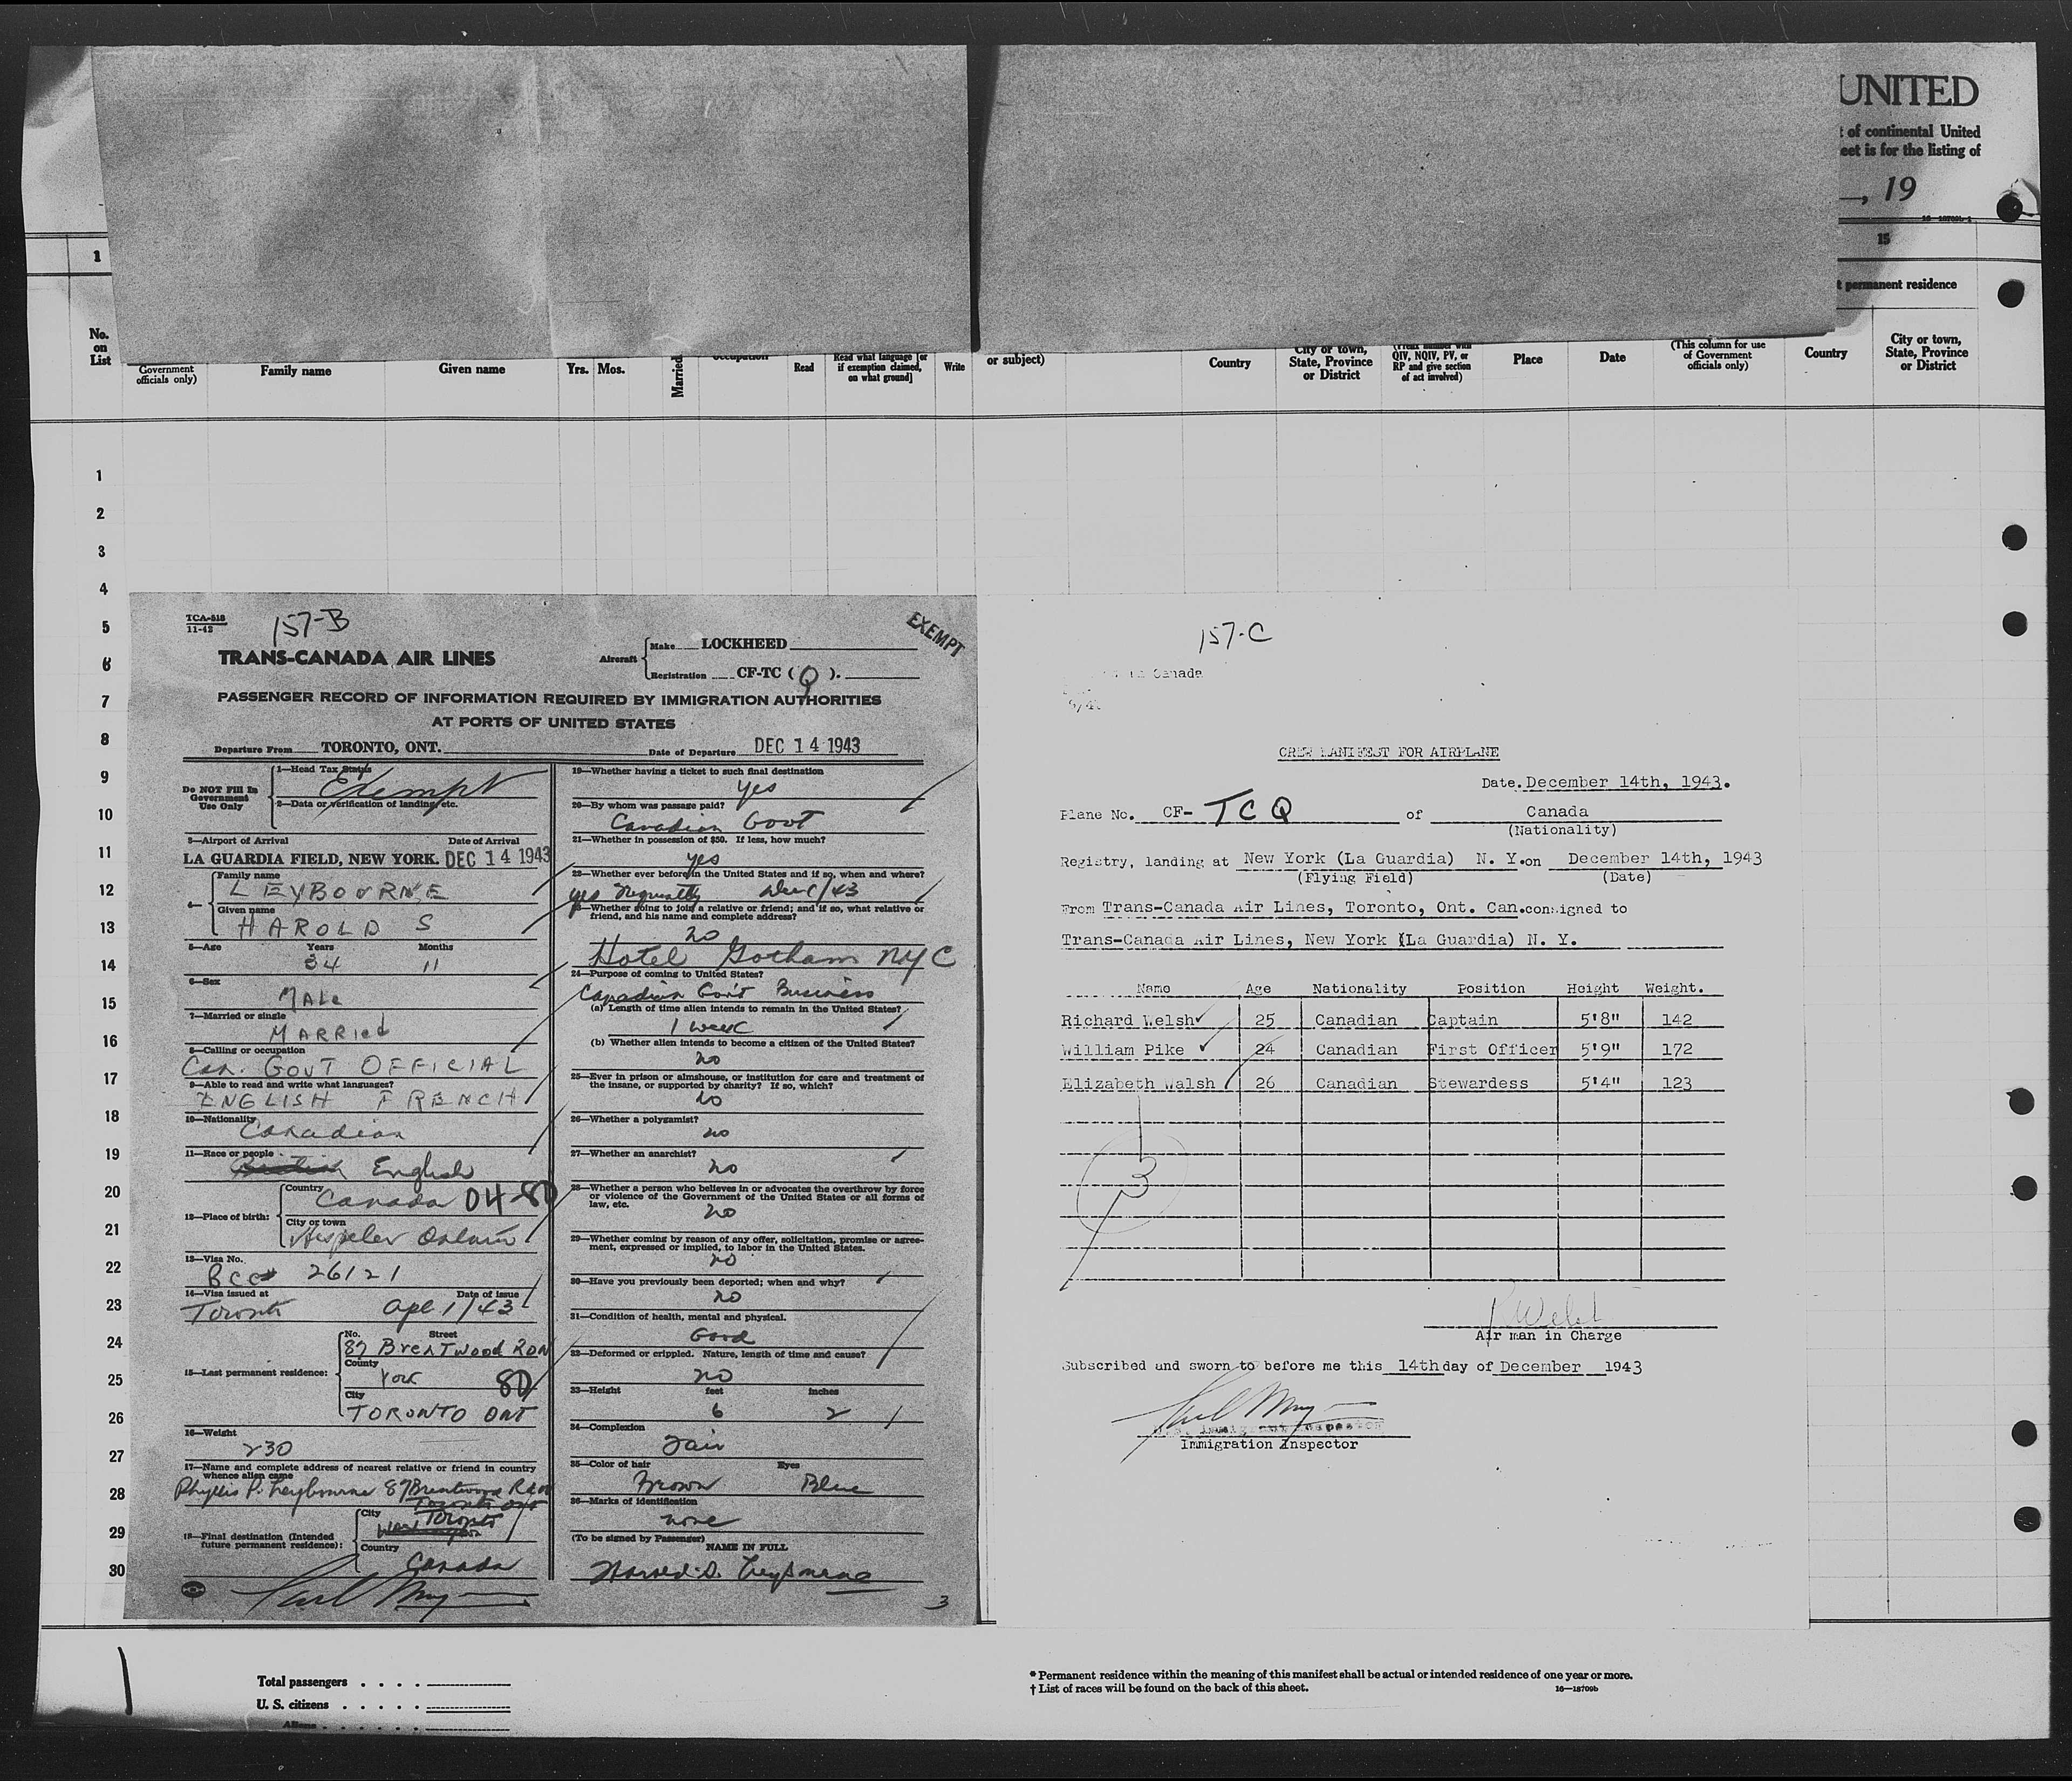 UNITED
t of continental United
eet is for the listing of
, 19
16—18709b-1
1
15
t permanent residence
No.
on
List
Government
officials only)
Family name
Given name
Yrs.
Mos.
Married
occupation
Read
Read what language [or
if exemption claimed,
on what ground]
Write
or subject)
Country
City or town,
State, Province
or District
QIV, NQIV, PV, or
RP and give section
of act involved)
Place
Date
(This column for use
of Government
officials only)
Country
City or town,
State, Province
or District
1
2
3
4
5
6
7
8
9
10
11
12
13
14
15
16
17
18
19
20
21
22
23
24
25
26
27
28
29
30
TCA-518
11-42
157-B
EXEMPT
TRANS-CANADA AIR LINES
Aircraft
Make LOCKHEED
Registration CF-TC ( Q ).
PASSENGER RECORD OF INFORMATION REQUIRED BY IMMIGRATION AUTHORITIES
AT PORTS OF UNITED STATES
Departure From TORONTO, ONT. Date of Departure DEC 14 1943
Do NOT Fill In
Government
Use Only
1—Head Tax Status
Exempt
2—Data or verification of landing, etc.
3—Airport of Arrival Date of Arrival
LA GUARDIA FIELD, NEW YORK. DEC 14 1943
4—
Family name
LEYBOURNE
Given name
HAROLD S
5—Age Years Months
34 11
6—Sex
MALE
7—Married or single
MARRIED
8—Calling or occupation
Can. GOVT OFFICIAL
9—Able to read and write what languages?
ENGLISH FRENCH
10—Nationality
Canadian
11—Race or people
British English
12—Place of birth:
Country
Canada 04-80
City or town
Hespeler Ontario
13—Visa No.
BCC# 26121
14—Visa issued at Date of issue
Toronto Apl 1/43
15—Last permanent residence:
No. Street
87 Brentwood Rd N
County
York 80
City
TORONTO ONT
16—Weight
230
17—Name and complete address of nearest relative or friend in country
whence alien came
Phyllis P. Leybourne 87 Brentwood Rd N
Toronto Ont
18—Final destination (Intended
future permanent residence):
City
Toronto
Country
Canada
19—Whether having a ticket to such final destination
yes
20—By whom was passage paid?
Canadian Govt
21—Whether in possession of $50. If less, how much?
yes
22—Whether ever before in the United States and if so, when and where?
yes frequently Dec 1/43
23—Whether going to join a relative or friend; and if so, what relative or
friend, and his name and complete address?
no
Hotel Gotham NYC
24—Purpose of coming to United States?
Canadian Gov't Business
(a) Length of time alien intends to remain in the United States?
1 week
(b) Whether alien intends to become a citizen of the United States?
no
25—Ever in prison or almshouse, or institution for care and treatment of
the insane, or supported by charity? If so, which?
no
26—Whether a polygamist?
no
27—Whether an anarchist?
no
28—Whether a person who believes in or advocates the overthrow by force
or violence of the Government of the United States or all forms of
law, etc.
no
29—Whether coming by reason of any offer, solicitation, promise or agree-
ment, expressed or implied, to labor in the United States.
no
30—Have you previously been deported; when and why?
no
31—Condition of health, mental and physical.
Good
32—Deformed or crippled. Nature, length of time and cause?
no
33—Height feet inches
6 2
34—Complexion
Fair
35—Color of hair Eyes
Brown Blue
36—Marks of identification
none
(To be signed by Passenger)
NAME IN FULL
Harold S. Leybourne
3
157-C
Canada
CREW MANIFEST FOR AIRPLANE
Date. December 14th, 1943.
Plane No. CF- TCQ of Canada
(Nationality)
Registry, landing at New York (La Guardia) N. Y. on December 14th, 1943
(Flying Field) (Date)
From Trans-Canada Air Lines, Toronto, Ont. Can. consigned to
Trans-Canada Air Lines, New York (La Guardia) N. Y.
Name Age Nationality Position Height Weight.
Richard Welsh 25 Canadian Captain 5'8" 142
William Pike 24 Canadian First Officer 5'9" 172
Elizabeth Walsh 26 Canadian Stewardess 5'4" 123
3
R Welsh
Air man in Charge
Subscribed and sworn to before me this 14th day of December 1943
U.S. Immigrant Inspector
Immigration Inspector
Total passengers . . . .
U. S. citizens . . . . .
Aliens . . . . . .
* Permanent residence within the meaning of this manifest shall be actual or intended residence of one year or more.
† List of races will be found on the back of this sheet.
16—18709b